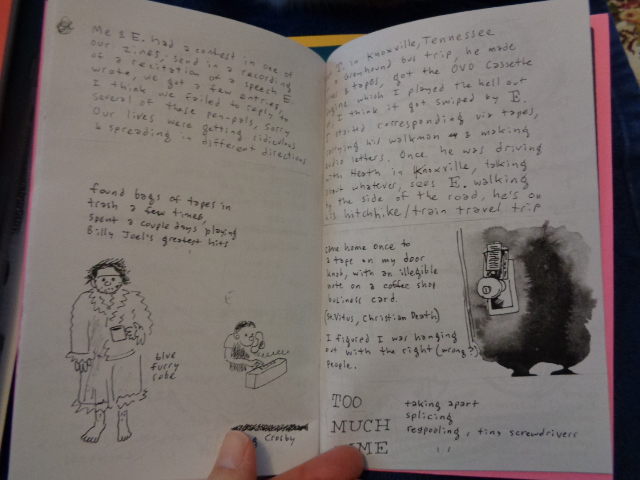 Me & E. had a contest in one of
our zines, send in a recording
of a recitation of a speech E.
wrote, we got a few entries,
I think we failed to reply to
several of these pen-pals, sorry
Our lives were getting ridiculous
& spreading in different directions
found bags of tapes in
trash a few times,
spent a couple days playing
Billy Joel's greatest hits
blue
furry
robe
Crosby
T. in Knoxville, Tennessee
Greyhound bus trip, he made
tapes, got the OVO cassette
which I played the hell out
I think it got swiped by E.
started corresponding via tapes,
carrying his walkman & making
audio letters. Once he was driving
with Heath in Knoxville, talking
about whatever, sees E. walking
by the side of the road, he's on
his hitchhike/train travel trip
came home once to
a tape on my door
knob, with an illegible
note on a coffee shop
business card.
(St. Vitus, Christian Death)
I figured I was hanging
out with the right (wrong?)
people.
TOO
MUCH
TIME
taking apart
splicing
respooling, tiny screwdrivers